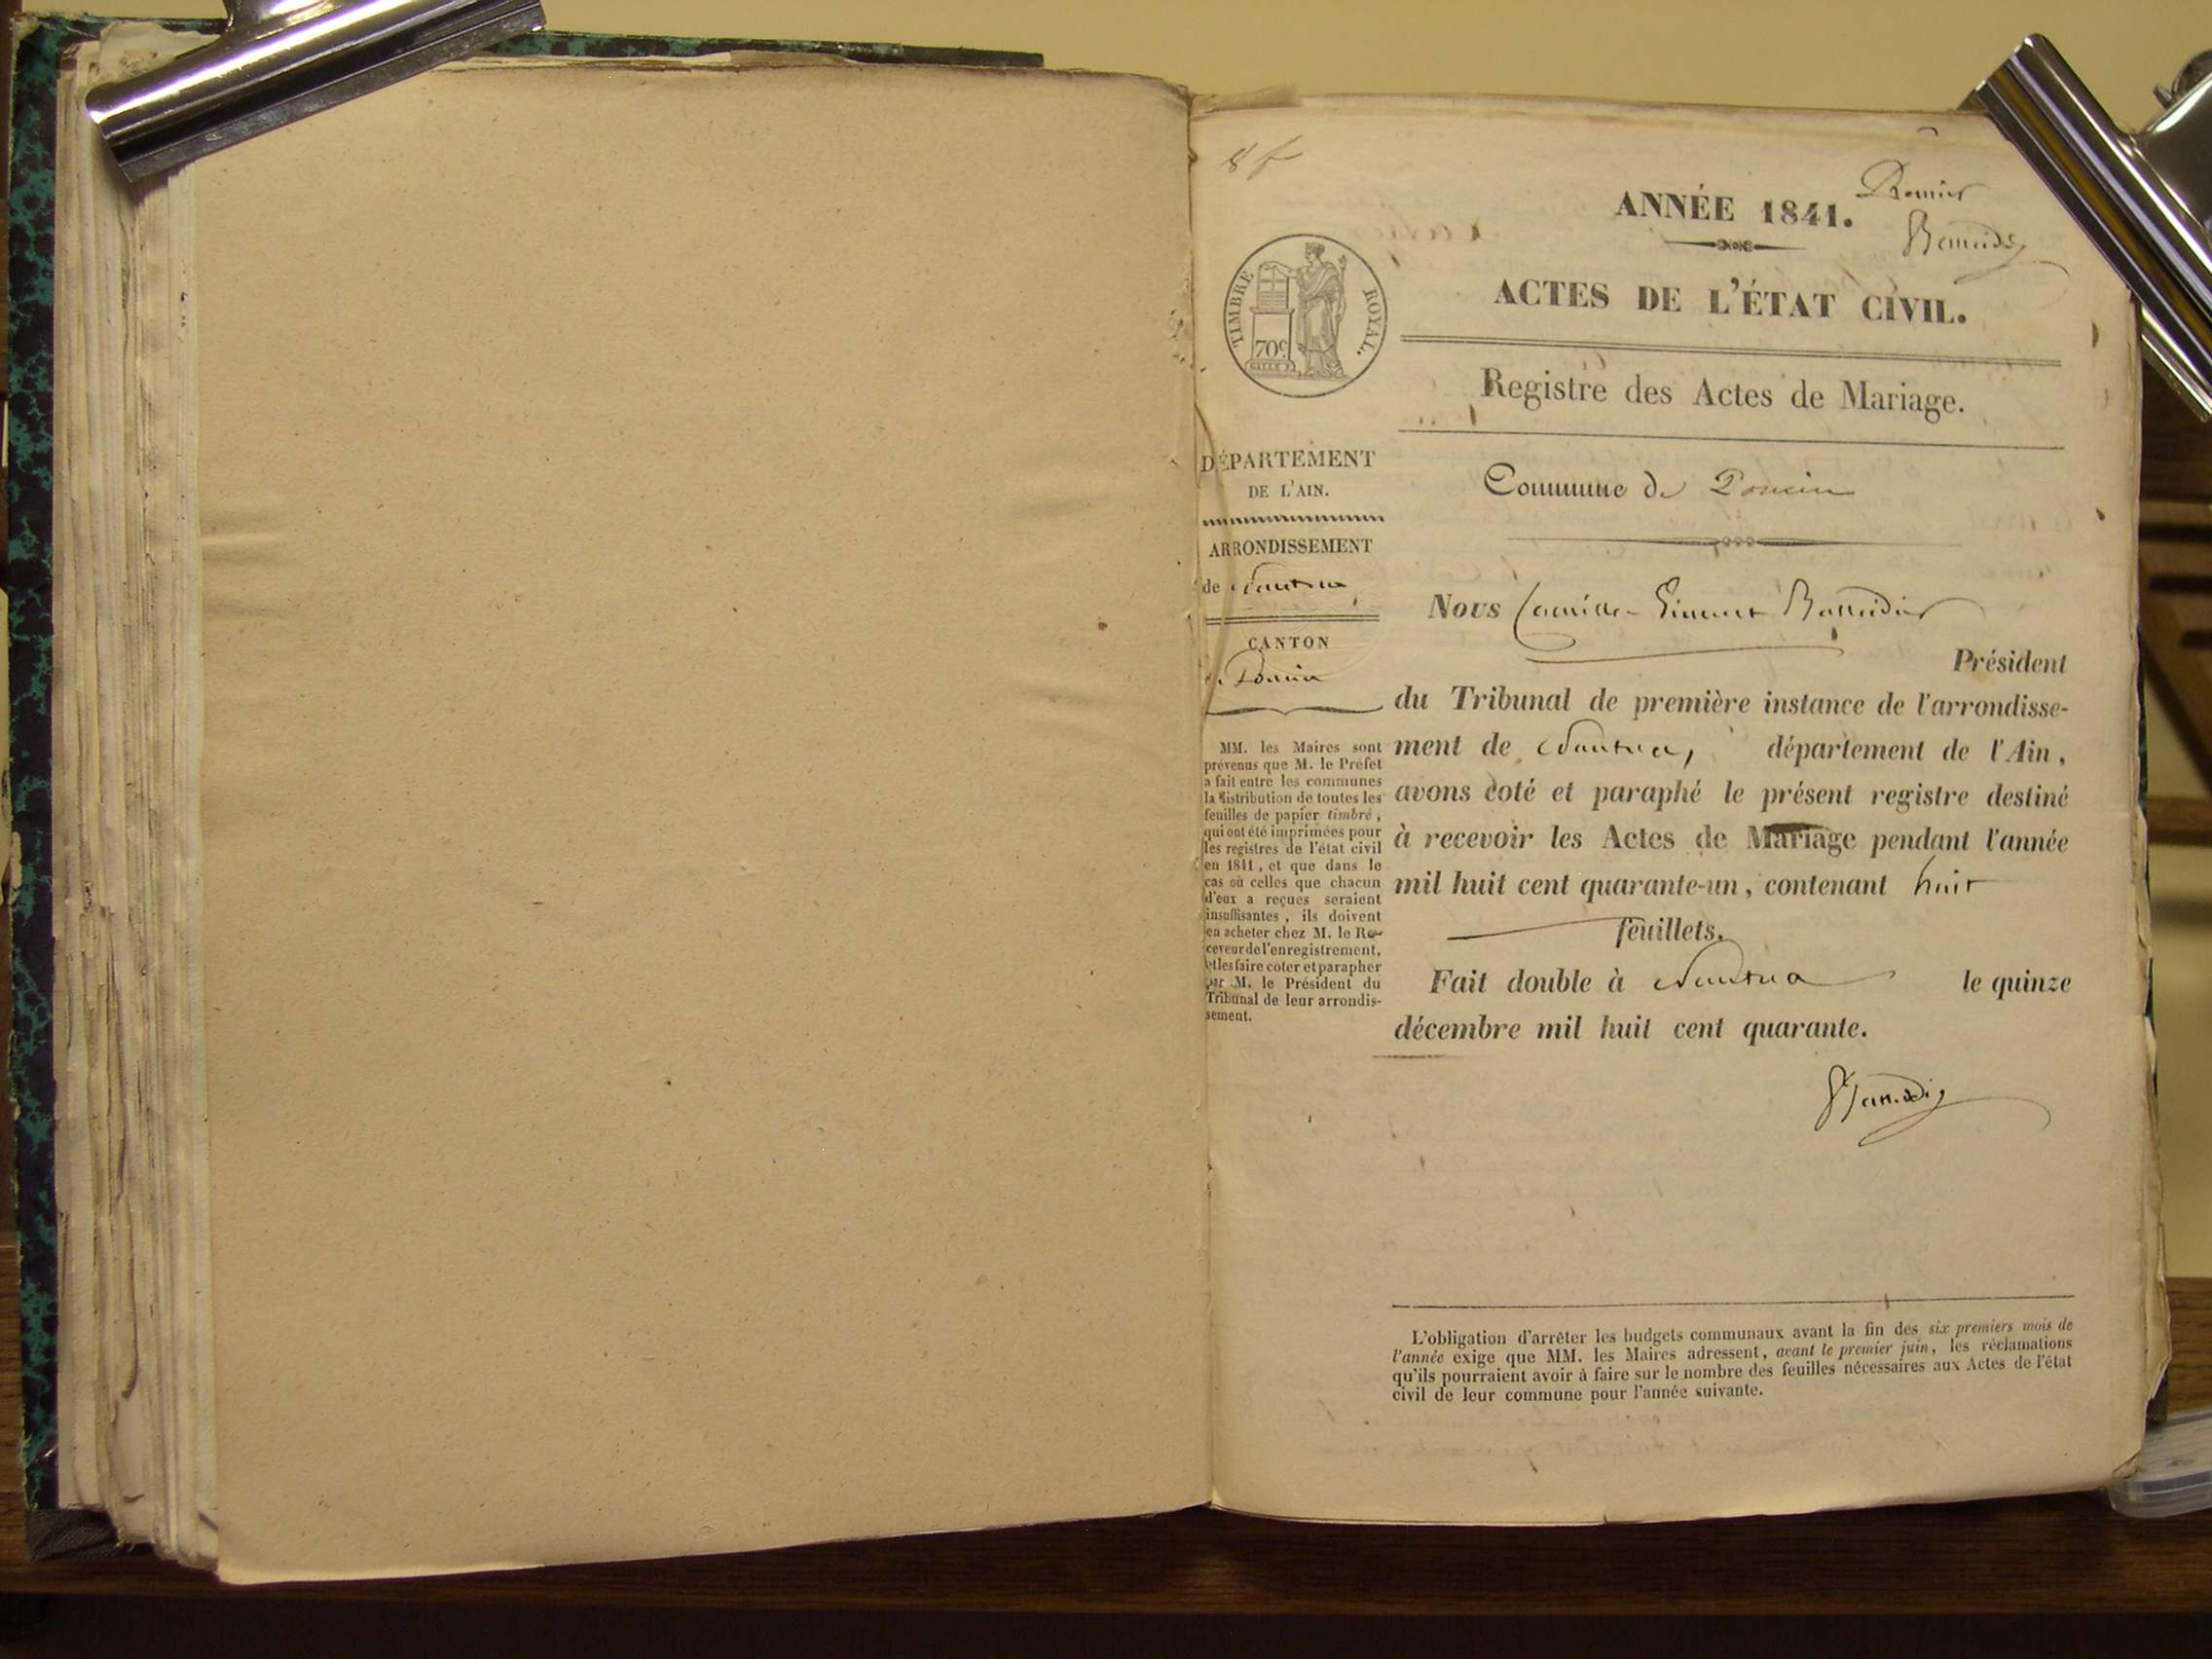 8 f
ANNÉE 1841. Premier
TIMBRE ROYAL.
70c
ACTES DE L'ÉTAT CIVIL.
Registre des Actes de Mariage.
DÉPARTEMENT
DE L'AIN.
ARRONDISSEMENT
de Nantua
CANTON
de Poncin
MM. les Maires sont
prévenus que M. le Préfet
a fait entre les communes
la distribution de toutes les
feuilles de papier timbré,
qui ont été imprimées pour
les registres de l'état civil
en 1841, et que dans le
cas où celles que chacun
d'eux a reçues seraient
insuffisantes, ils doivent
en acheter chez M. le Re-
ceveur de l'enregistrement,
et les faire coter et parapher
par M. le Président du
Tribunal de leur arrondis-
sement.
Commune de Poncin
Nous Camille Vincent
Président
du Tribunal de première instance de l'arrondisse-
ment de Nantua, département de l'Ain,
avons coté et paraphé le présent registre destiné
à recevoir les Actes de Mariage pendant l'année
mil huit cent quarante-un, contenant huit
feuillets.
Fait double à Nantua le quinze
décembre mil huit cent quarante.
L'obligation d'arrêter les budgets communaux avant la fin des six premiers mois de
l'année exige que MM. les Maires adressent, avant le premier juin, les réclamations
qu'ils pourraient avoir à faire sur le nombre des feuilles nécessaires aux Actes de l'état
civil de leur commune pour l'année suivante.